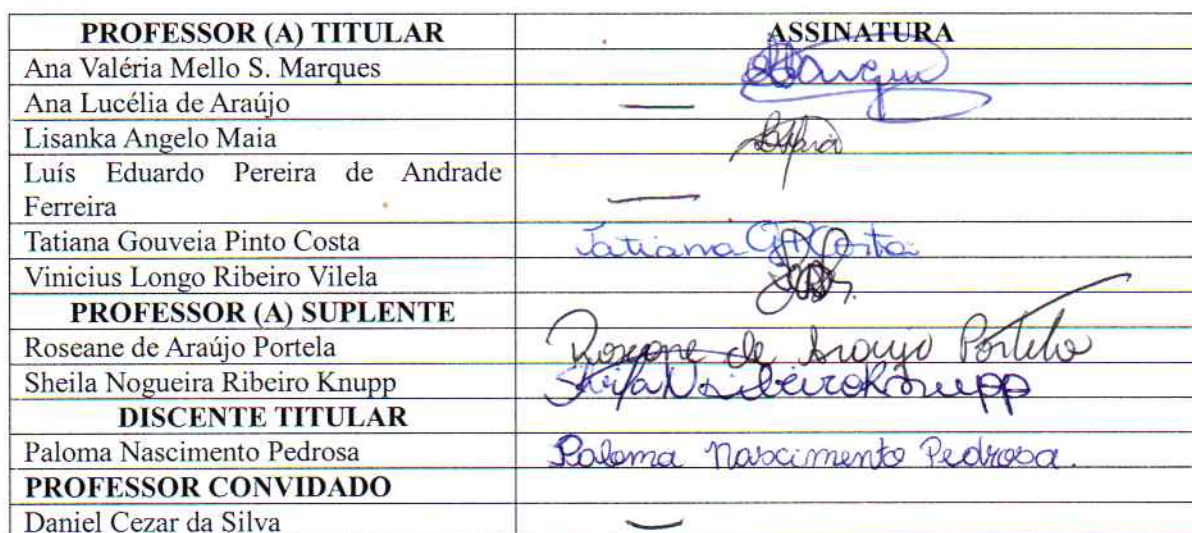 PROFESSOR (A) TITULAR ASSINATURA
Ana Valéria Mello S. Marques
Ana Lucélia de Araújo —
Lisanka Angelo Maia
Luís Eduardo Pereira de Andrade
Ferreira —
Tatiana Gouveia Pinto Costa Tatiana GP Costa
Vinicius Longo Ribeiro Vilela
PROFESSOR (A) SUPLENTE
Roseane de Araújo Portela Roseane de Araujo Portela
Sheila Nogueira Ribeiro Knupp Sheila N Ribeiro Knupp
DISCENTE TITULAR
Paloma Nascimento Pedrosa Paloma Nascimento Pedrosa.
PROFESSOR CONVIDADO
Daniel Cezar da Silva —